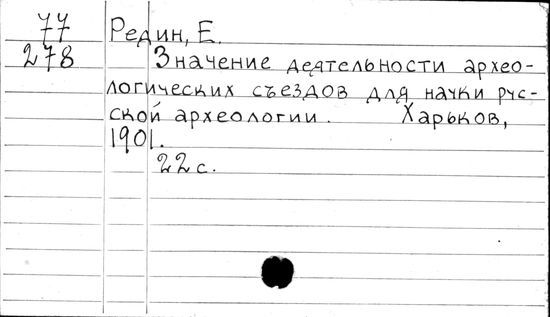 77 Редин, Е.
278 Значение деятельности архео-
логических съездов для науки рус-
ской археологии. Харьков,
1901.
22 с.